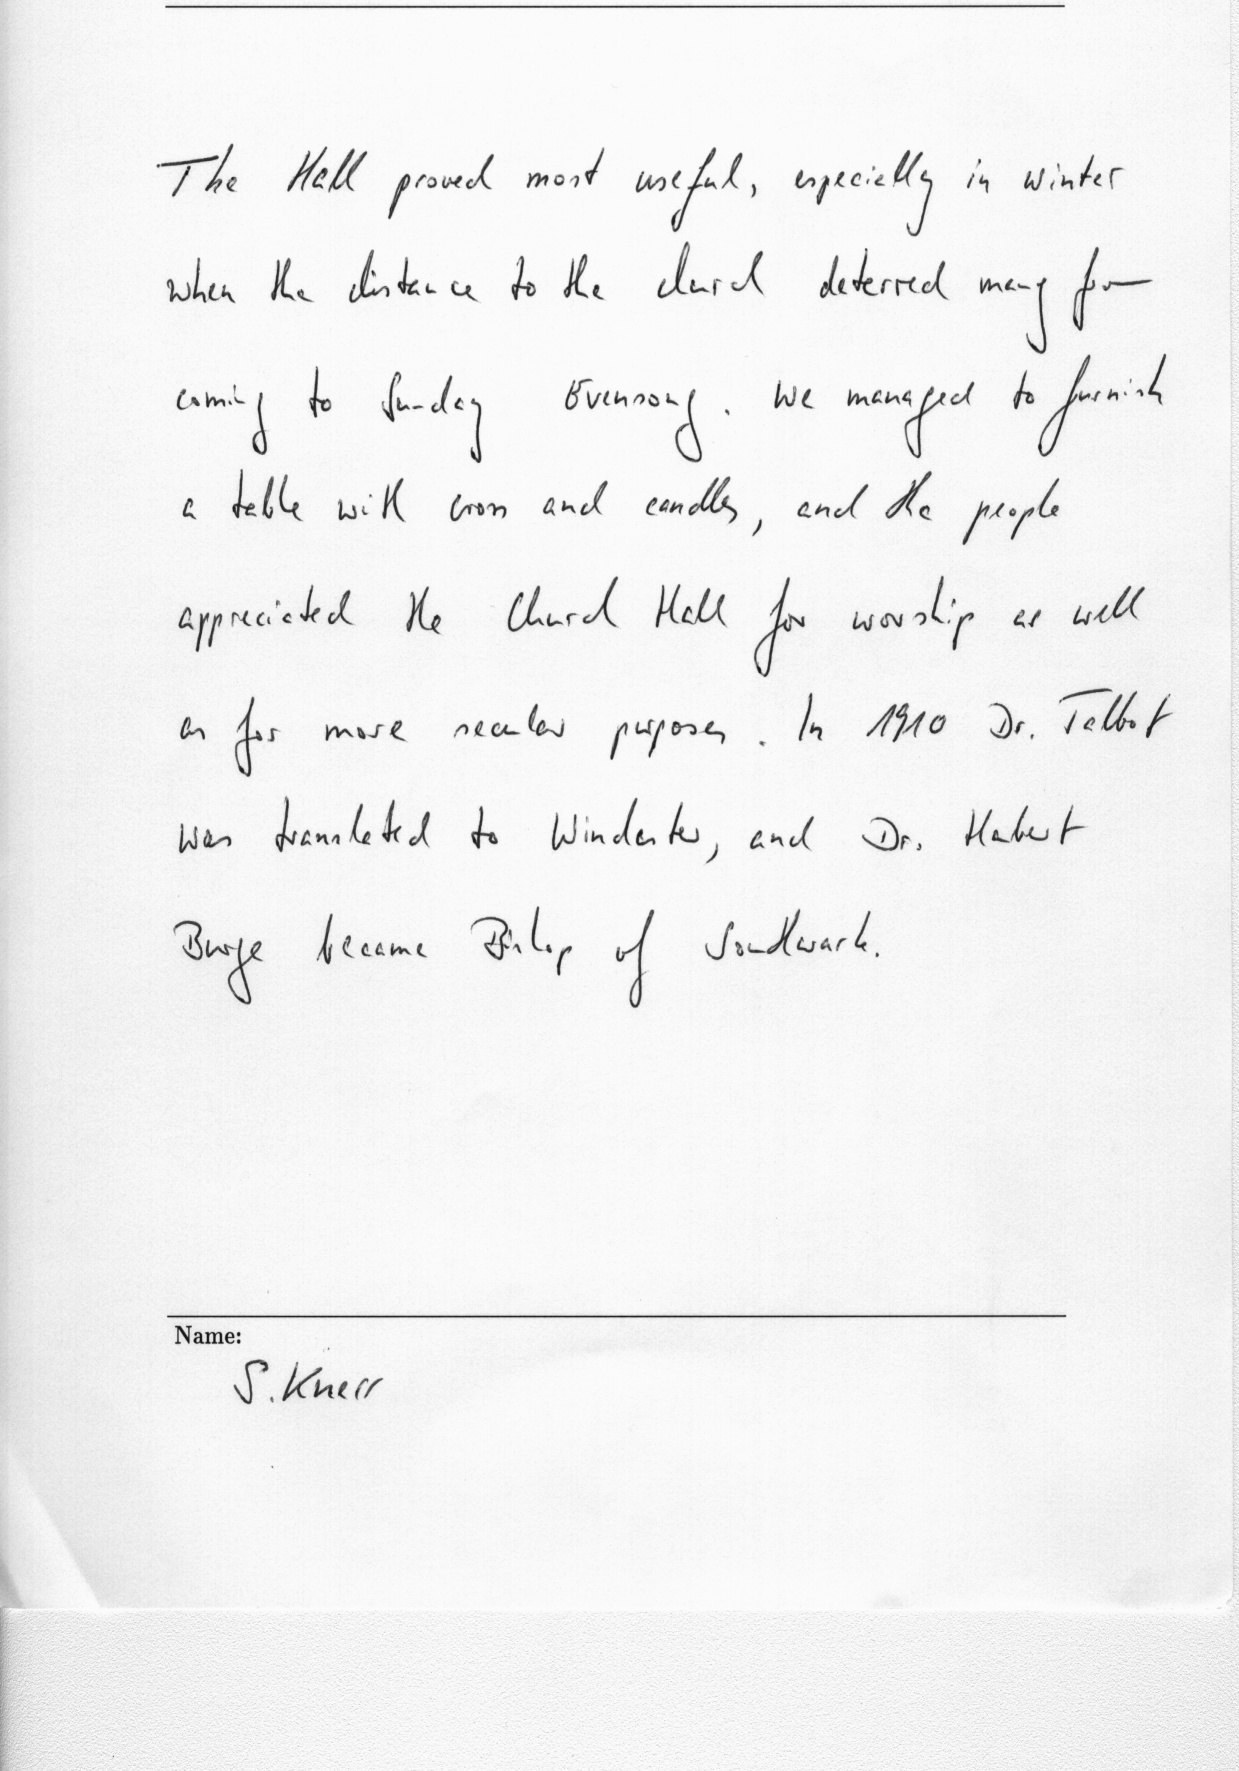 The Hall proved most useful, especially in winter
when the distance to the church deterred many from
coming to Sunday Evensong. We managed to furnish
a table with cross and candles, and the people
appreciated the Church Hall for worship as well
as for more secular purposes. In 1910 Dr. Talbot
was translated to Winchester, and Dr. Hubert
Burge became Bishop of Southwark.
Name:
S. Knerr